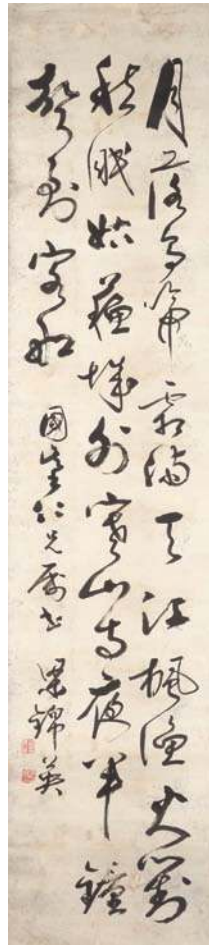 月落烏啼霜滿天江楓漁火對
愁眠姑蘇城外寒山寺夜半鐘
聲到客船
國仁兄屬書 梁錦英